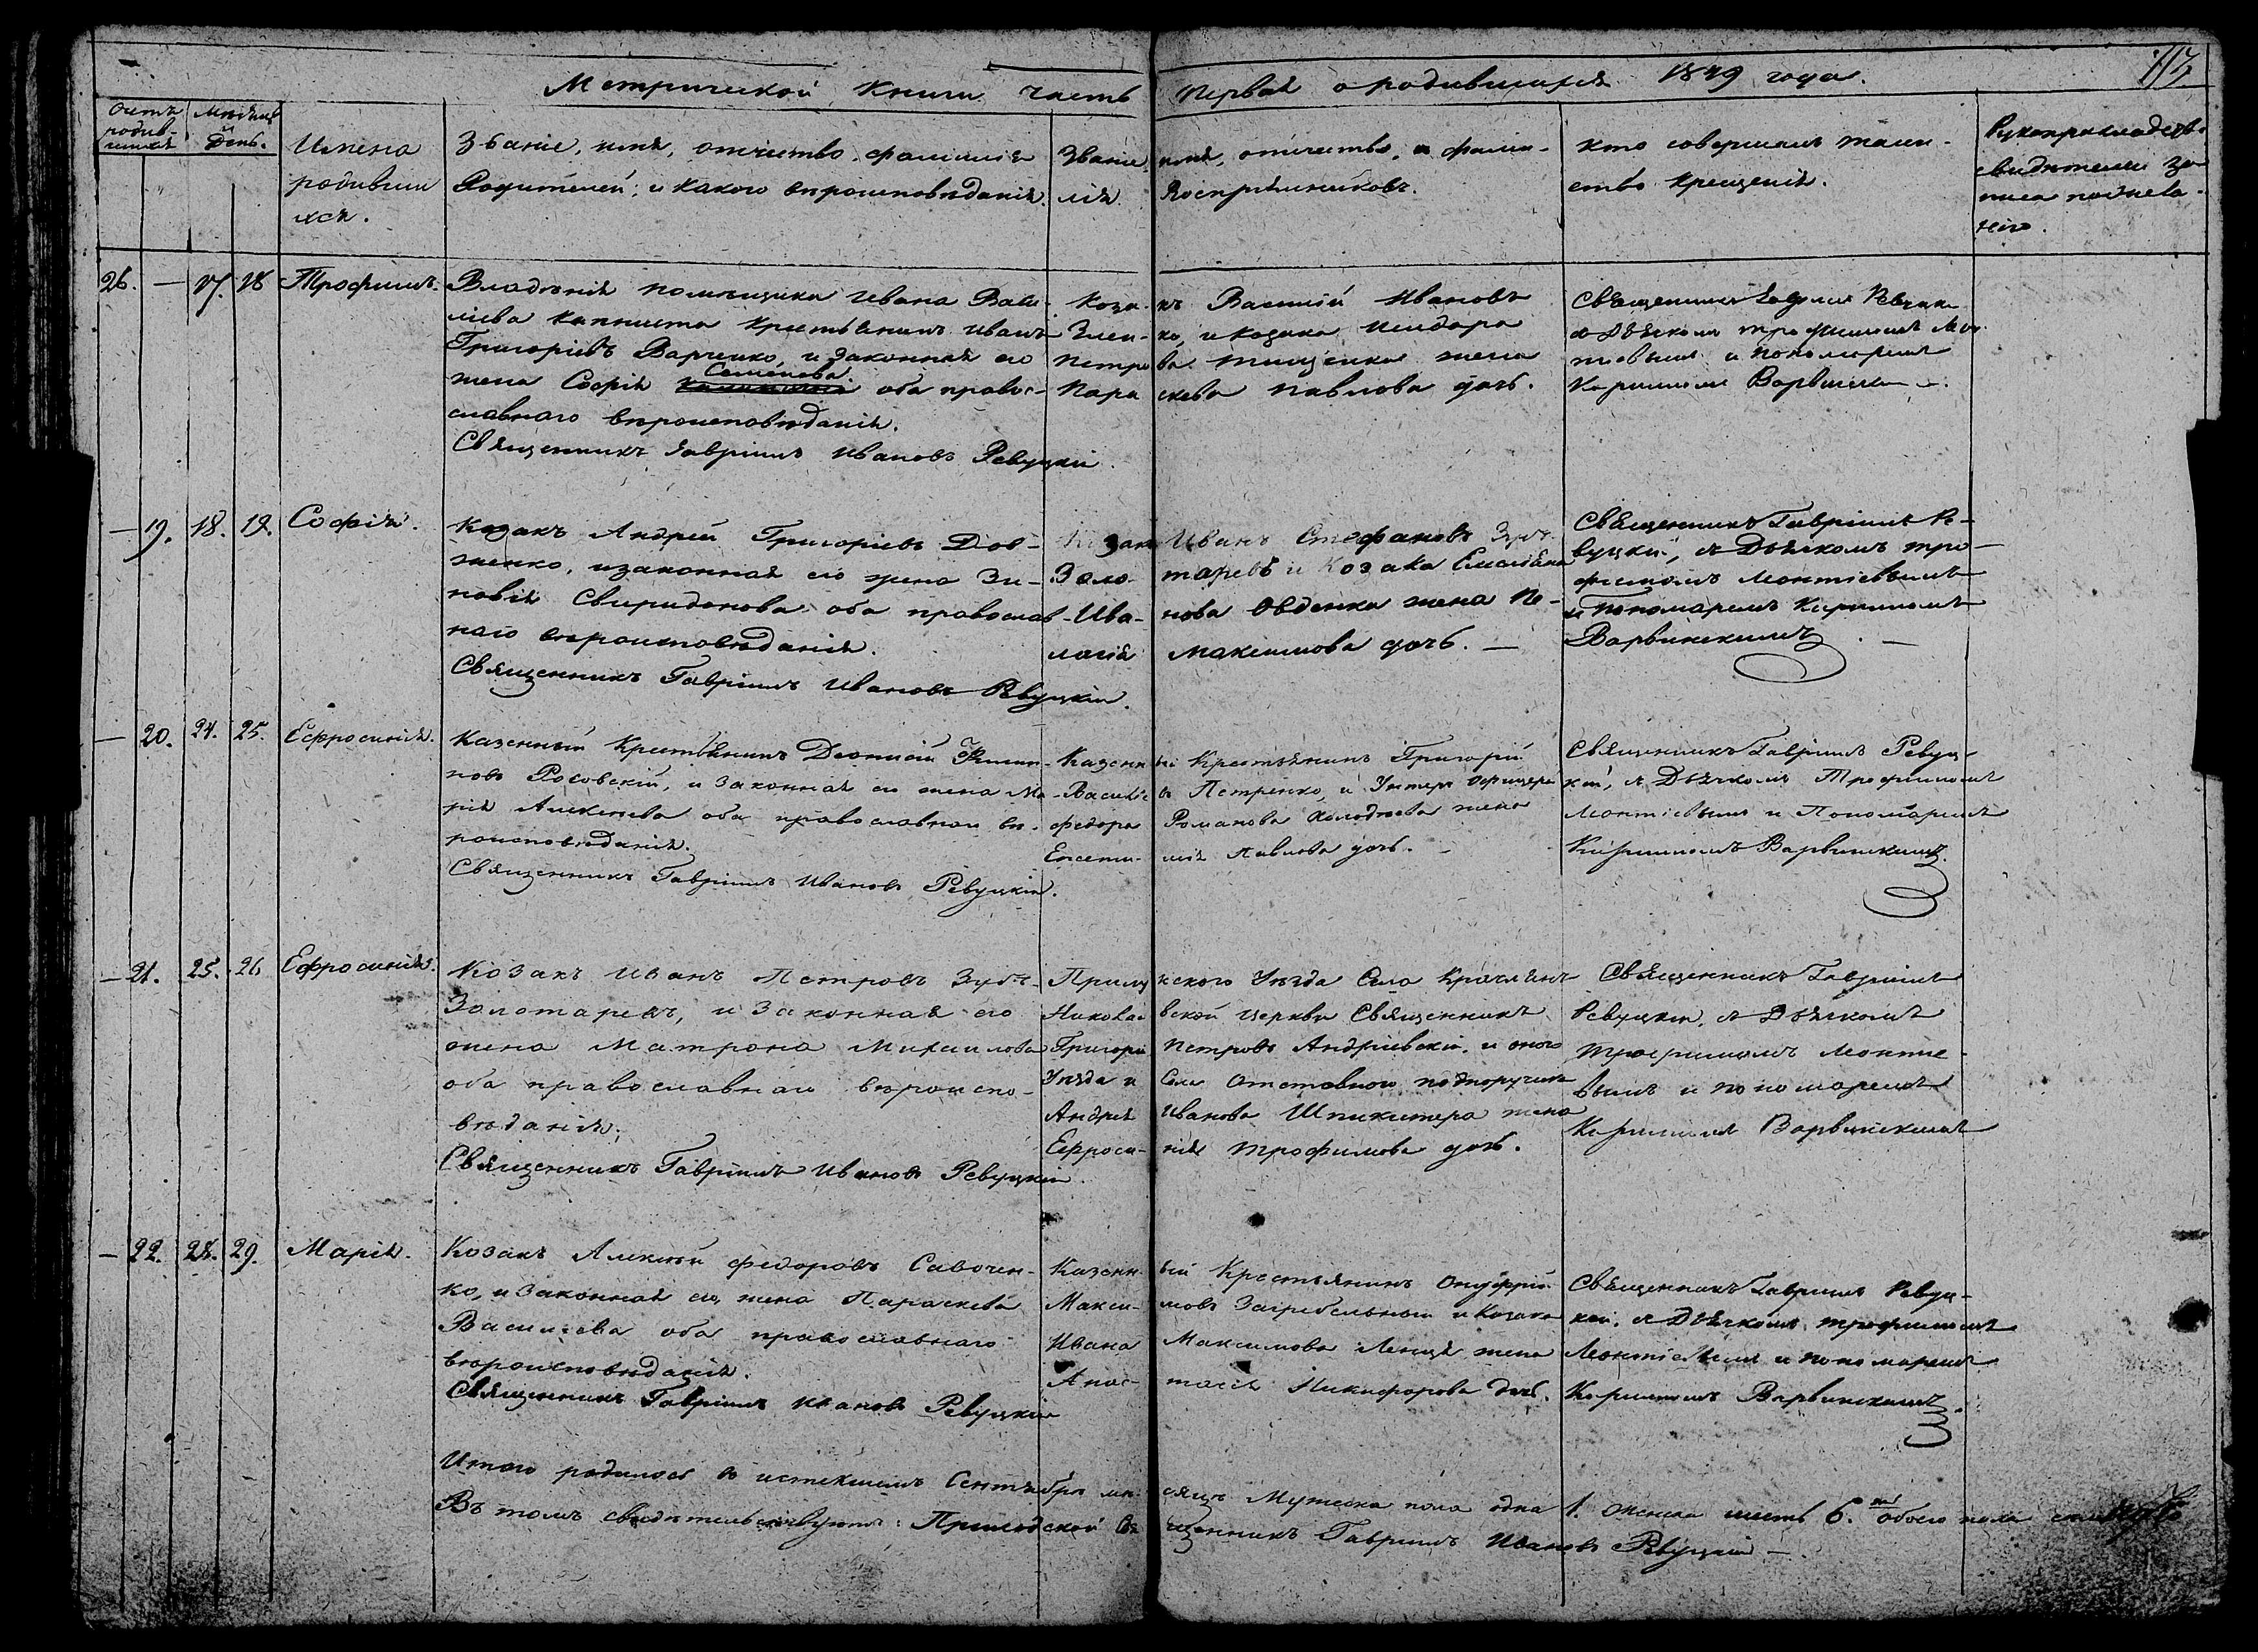 Метрической Книги часть первая о родившихся 1849 года.
Счетъ родив-шихся
Мѣсяцъ и День.
Имена родивши хся.
Званіе, имя, отчество, фамилія
Родителей, и какого вѣроисповѣданія.
Званіе имя, отчество, и фами-
лія Воспріемниковъ.
кто совершалъ таин-
ство крещенія.
Рукоприкладство
свидѣтелей за-
писи по
26. — 17. 18 Трофимъ.
Владѣнія помѣщика Ивана Васи-
ліева Капниста крестьянинъ Иванъ
Григоріевъ Варченко, и законная его
жена Софія Семенова оба правос-
славнаго вѣроисповѣданія.
Священникъ Гавріилъ Ивановъ Ревуцкій.
Козакъ Василій Ивановъ
и козака Исидора
Петрова Тищенка жена
Параскева Павлова дочь.
Священникъ Гавріилъ Ревуцкій
съ Дьячкомъ Трофимомъ Леон-
тіевымъ и пономаремъ
Кириломъ Варвинскимъ.
— 19. 18. 19. Софія.
Козакъ Андрей Григоріевъ Дов-
женко, и законная его жена Зи-
новія Свиридонова оба православ-
наго вѣроисповѣданія.
Священникъ Гавріилъ Ивановъ Ревуцкій.
Козакъ Иванъ Стефановъ Зубъ-
Золотаревъ и Козака Емельяна
Иванова Овденка жена Пе-
лагія Максимова дочь. —
Священникъ Гавріилъ Ре-
вуцкій, съ Дьячкомъ Тро-
фимомъ Леонтіевымъ
и Пономаремъ Кириломъ
Варвинскимъ. —
— 20. 24. 25. Ефросинія.
Казенный Крестьянинъ Діонисій Филип-
повъ Росовскій, и законная его жена Ма-
рія Алексѣева оба православнаго вѣ-
роисповѣданія.
Священникъ Гавріилъ Ивановъ Ревуцкій.
Казенный Крестьянинъ Григорій
Васильевъ Петренко, и Унтеръ офицера
Федора Романова Холоднова жена
Павлова дочь. —
Священникъ Гавріилъ Ревуц-
кій, съ Дьячкомъ Трофимомъ
Леонтіевымъ и Пономаремъ
Кириломъ Варвинскимъ.
— 21. 25. 26 Ефросинія.
Козакъ Иванъ Петровъ Зубъ-
Золотаревъ, и законная его
жена Матрона Михайлова
оба православнаго вѣроиспо-
вѣданія.
Священникъ Гавріилъ Ивановъ Ревуцкій.
Прилуцкого Уѣзда Села
Николаевской церкви Священникъ
Григорій Петровъ Андріевскій, и оного
Уѣзда и Села Отставного подпоручика
Андрея Иванова жена
Ефросинія Трофимова дочь.
Священникъ Гавріилъ
Ревуцкій, съ Дьячкомъ
Трофимомъ Леонтіе-
вымъ и пономаремъ
Кириломъ Варвинскимъ
— 22. 28. 29. Марія.
Козакъ Алексѣй Федоровъ Савочен-
ко, и законная его жена Параскева
Васильева оба православнаго
вѣроисповѣданія.
Священникъ Гавріилъ Ивановъ Ревуцкій
Казенный Крестьянинъ Онуфрій
Максимовъ Загребельный и Козака
Ивана Максимова жена
Анастасія Никифорова дочь.
Священникъ Гавріилъ Ревуц-
кій, съ Дьячкомъ Трофимомъ
Леонтіевымъ и пономаремъ
Кириломъ Варвинскимъ.
Итого родилось въ истекшемъ Сентябрѣ мѣсяцѣ Мужеска пола одна 1. Женска шесть 6. обоего пола семь
Въ томъ свидѣтельствуютъ: Приходской Священникъ Гавріилъ Ивановъ Ревуцкій —.